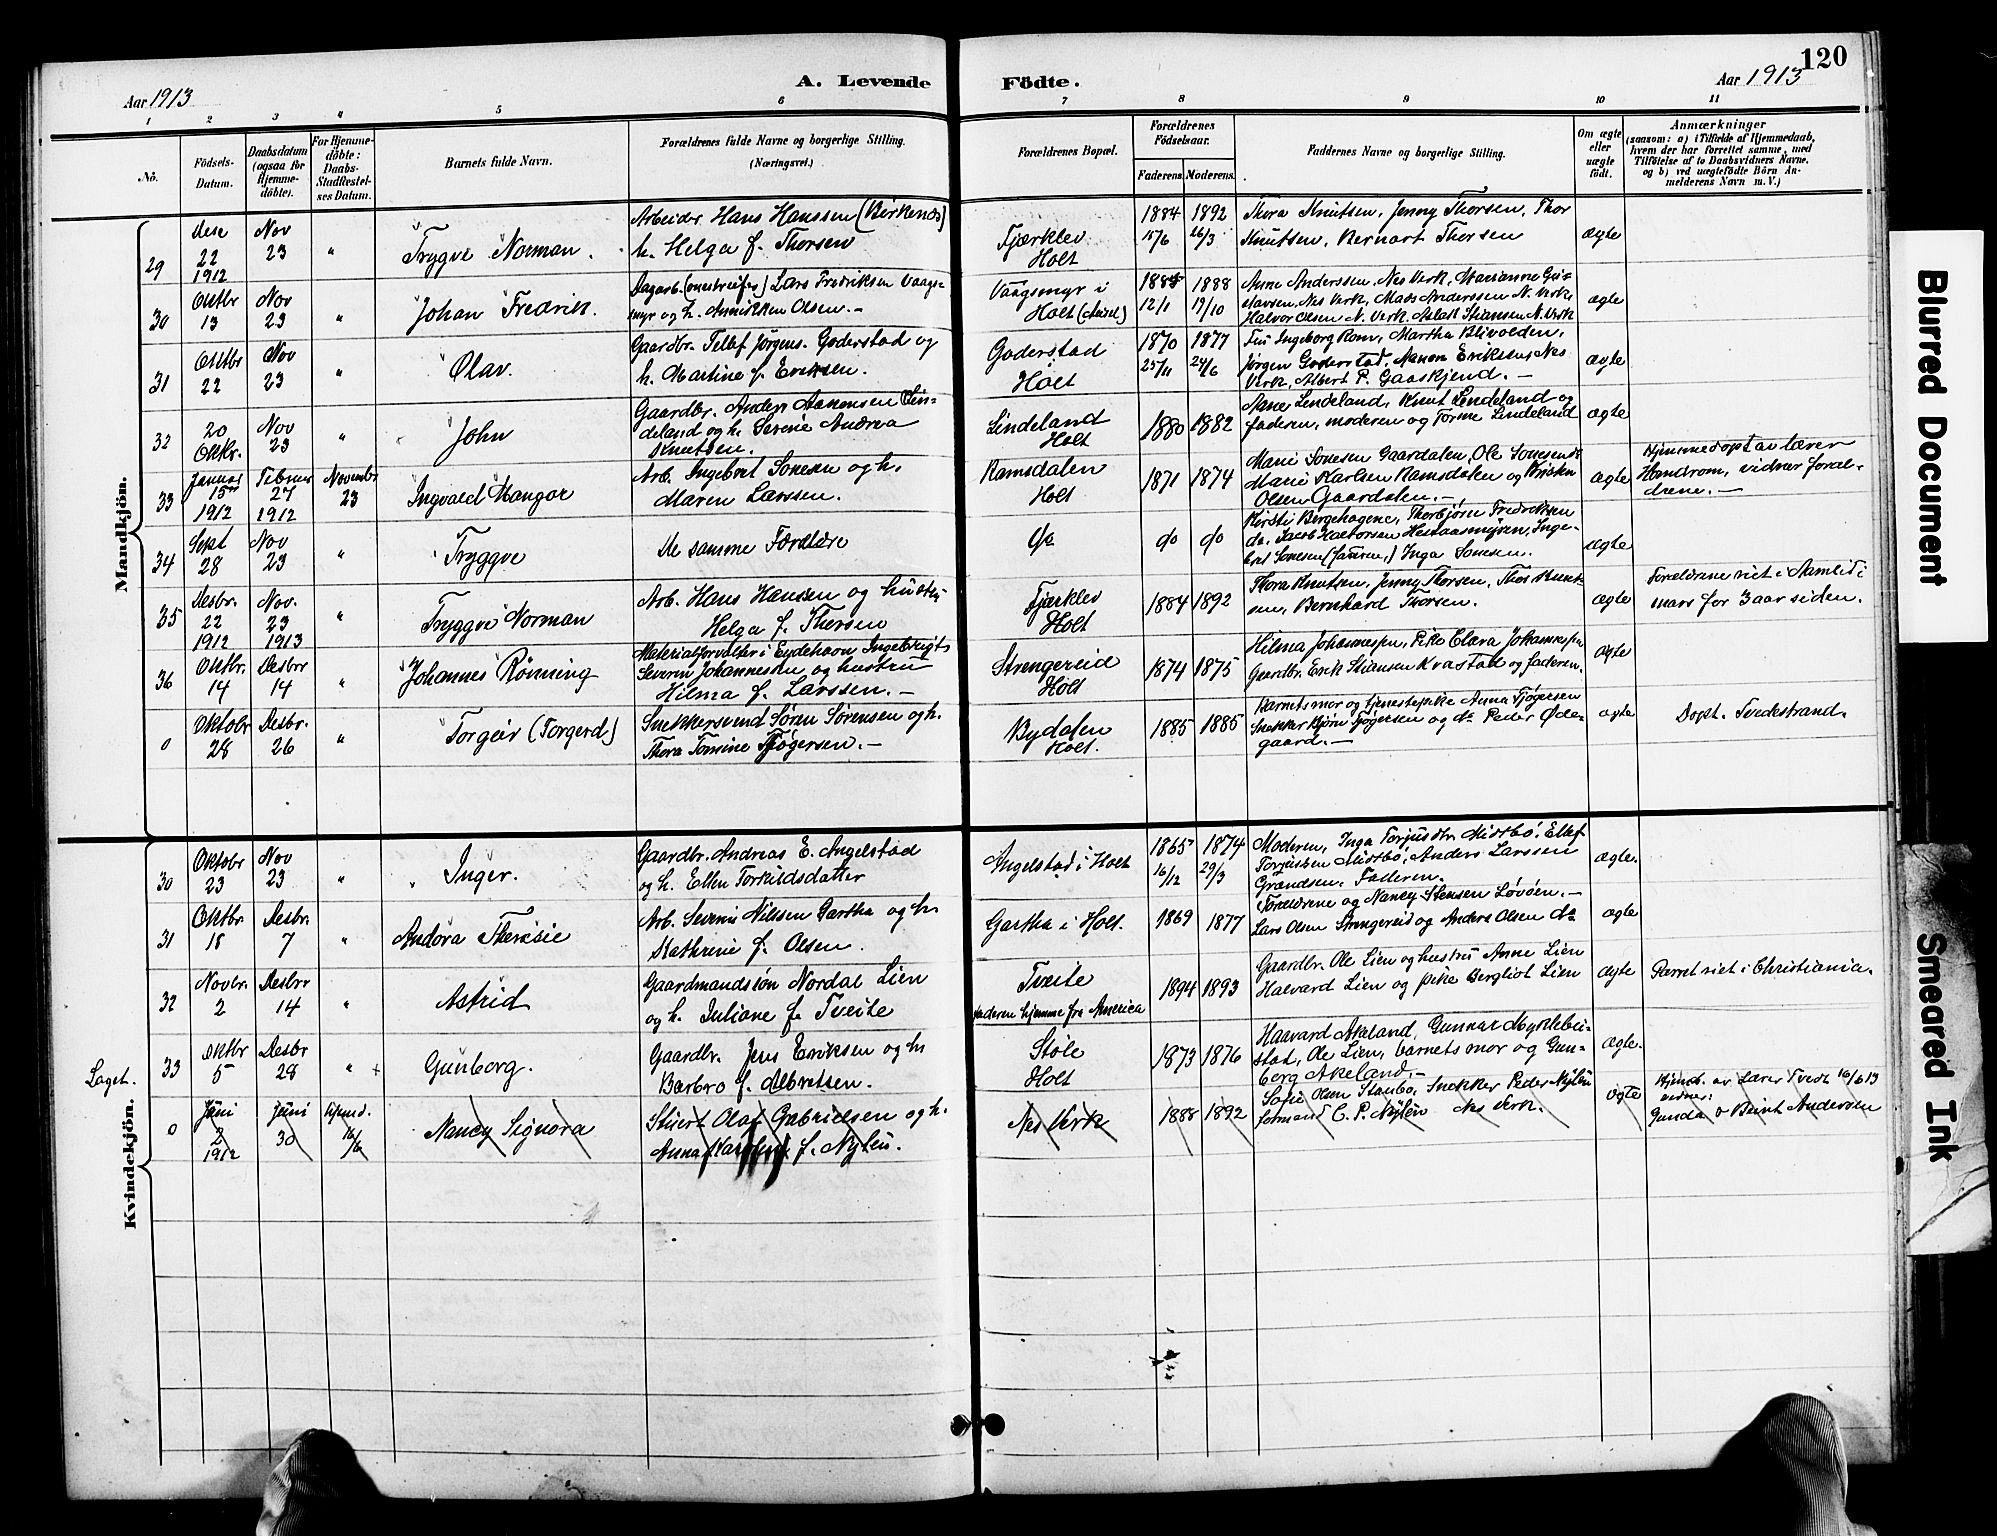 120
Aar 1913
A. Levende Födte.
Aar 1913
1 2 3 4 5 6 7 8 9 10 11
No.
Födsels-Datum.
Daabsdatum (ogsaa for Hjemme-döbte).
For Hjemme-döbte: Daabs-Stadfestel-ses Datum.
Barnets fulde Navn.
Forældrenes fulde Navne og borgerlige Stilling.
(Næringsvei.)
Forældrenes Bopæl.
Forældrenes Födselsaar.
Faderens. Moderens.
Faddernes Navne og borgerlige Stilling.
Om ægte eller uægte födt.
Anmærkninger
(saasom: a) i Tilfælde af Hjemmedaab,
hvem der har forrettet samme, med
Tilföielse af to Daabsvidners Navne,
og b) ved uægtefödte Börn An-
melderens Navn m. V.)
Mandkjön.
29 Dese 22 1912 Nov 23 " Trygve Norman.
Arbeider Hans Hanssen (Birkenes)
h. Helga f. Thorsen
Fjærklev Holt
1884 15/6 1892 26/3
Thora Knutsen, Jenny Thorsen, Thor
Knutsen, Bernart Thorsen
ægte
30 Oktbr 13 Nov 23 " Johan Fredrik.
Dagarb. Lars Fredriksen Vaags-
myr og h. Annikken Olsen.-
Vaagsmyr i Holt
12/1 1888 19/10
Anne Anderssen, Nes Verk, Marianne Gu-
stavsen, Nes Verk, Mads Anderssen N. Verk,
Halvor Olsen N. Verk, Aslak Stiansen N. Verk
ægte
31 Oktbr 22 Nov 23 " Olav.
Gaardbr. Tellef Jörgens. Goderstad og
h. Martine f. Eriksen.
Goderstad Holt
1870 25/11 1877 24/6
Fru Ingeborg Rom, Martha Blivolden,
Jørgen Goderstad, Eriksen Nes
Verk, Albert P. Gaaskjend.-
ægte
32 20 Oktbr. Nov 23 " John
Gaardbr. Anders Aanonsen Lin-
deland og h. Serine Andrea
Knutsen.
Lindeland Holt
1880 1882
Aane Lindeland, Knut Lindeland og
faderen, moderen og Tomine Lindeland
ægte
33 Januar 15 1912 Februar 27 1912 Novembr 23 Ingvald Mangor
Arb. Ingebret Sonesen og h.
Maren Larssen.
Ramsdalen Holt
1871 1874
Marie Sonesen Gaardalen, Ole Sonesen ds
Marie Karlsen Ramsdalen og Kristen
Olsen Gaardalen.-
ægte
Hjemmedøpt av lærer
Handrom, vidner foræl-
drene.-
34 Sept 28 Nov 23 " Tryggve
De samme Forældre
do do do
Kirsti Bergehagene, Thorbjörn Fredriksen
do. Jacob Halvorsen Hestaasmyren, Inge-
bret Sonesen (faderen,) Inga Sonesen.
ægte
35 Desbr. 22 1912 Nov. 23 1913 " Tryggve Norman
Arb. Hans Hansen og hustru
Helga f. Thorsen
Fjærklev Holt
1884 1892
Thora Knutsen, Jenny Thorsen, Thor Knut-
sen, Bernhard Thorsen.
ægte
Forældrene viet i Aamli i
mars for 3 aar siden.
36 Oktbr. 14 Desbr 14 " Johannes Rønning
Materialforvalter i Eydehavn Ingebrigt
Severin Johannessen og hustru
Hilma f. Larssen.-
Strengereid Holt
1874 1875
Hilma Johannessen, Pike Clara Johannessen
Gaardbr. Erik Stiansen Kvastad og faderen.
ægte
0 Oktobr 28 Desbr. 26 " Torgeir (Torgerd)
Snekkersvend Søren Sørensen og h.
Thora Tomine Tjøgersen.-
Bydalen Holt.
1885 1885
Barnets mor og tjenestepike Anna Tjøgersen
Snekker Bjørn Tjøgersen og do Peder Øde-
gaard.-
ægte
Døpt. Tvedestrand.
Kvindekjön.
30 Oktobr 23 Nov 23 " Inger.
Gaardbr. Andreas E. Angelstad
og h. Ellen Torkildsdatter
Angelstad i Holt
1865 16/12 1874 29/3
Moderen, Inga Torjusdtr Midtbö, Ellef
Torjussen Midtbö, Anders Larssen
Grændsen. Faderen.
ægte.
31 Oktbr. 18 Desbr. 7 " Andora Theresie
Arb. Severin Nilssen Gartha og h.
Kathrine f. Olsen.
Gartha i Holt.
1869 1877
Forældrene og Nancy Stensen Løvöen.-
Lars Olsen Strengereid og Anders Olsen do
ægte
32 Novbr. 2 Desbr 14 " Astrid
Gaardmandssön Nordal Lien
og h. Juliane f. Tveite
Tveite
faderen hjemme fra America
1894 1893
Gaardbr. Ole Lien og hustru Anne Lien
Halvard Lien og pike Bergliot Lien
ægte
Parret viet i Christiania.
Laget.
33 Oktbr 5 Desbr 28 " + Gunborg.
Gaardbr. Jens Eriksen og h
Barbro f. Albretsen.
Støle Holt
1873 1876
Haavard Akeland, Gunnar Myrklebu-
stad, Ole Lien, barnets mor og Gun-
berg Akeland.-
ægte.
0 Juni 2 1912 Juni 30 Hjemd. 16/6 Nancy Signora
Stuert Olaf Gabrielsen og h.
Anna f. Nylén.
Nes Verk
1888 1892
Sofie Olsen Staubø, Snekker Peder Nylén
formand C. P. Nylén Nes Verk.
ægte
Hjemd. av Lærer Tvedt 16/6 13
vidner:
Gunda & Beint Andersen
Blurred Document
Smeared Ink